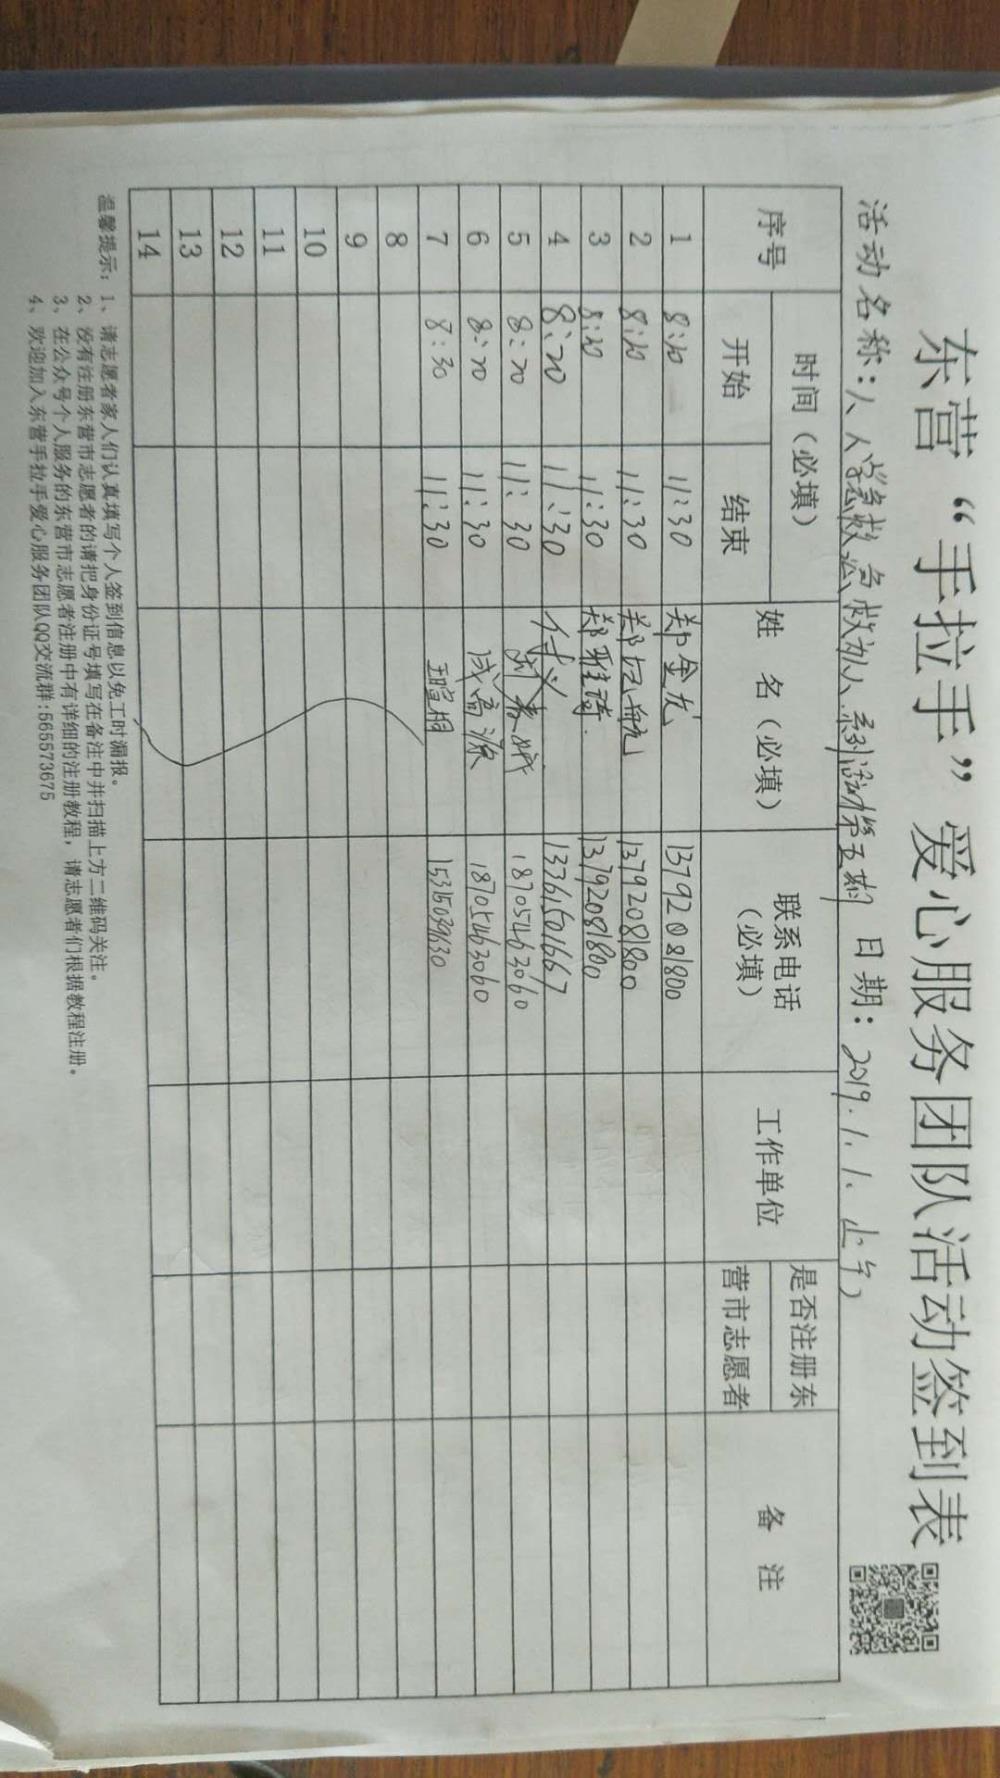 东营“手拉手”爱心服务团队活动签到表
活动名称：人人学急救 急救为人人系列活动第五期 日期：2019.1.1.上午
序号 时间（必填） 姓 名（必填） 联系电话（必填） 工作单位 是否注册东营市志愿者 备 注
开始 结束
1 8:20 11:30 郑金龙 13792081800
2 8:20 11:30 郑 航 13792081800
3 8:20 11:30 郑雅 13792081800
4 8:20 11:30 13361501667
5 8:20 11:30 18705463060
6 8:20 11:30 成高源 18705463060
7 8:30 11:30 桐 15315039630
8
9
10
11
12
13
14
温馨提示：1、请志愿者家人们认真填写个人签到信息以免工时漏报。
2、没有注册东营市志愿者的请把身份证号填写在备注中并扫描上方二维码关注。
3、在公众号个人服务的东营市志愿者注册中有详细的注册教程，请志愿者们根据教程注册。
4、欢迎加入东营手拉手爱心服务团队QQ交流群：565573675